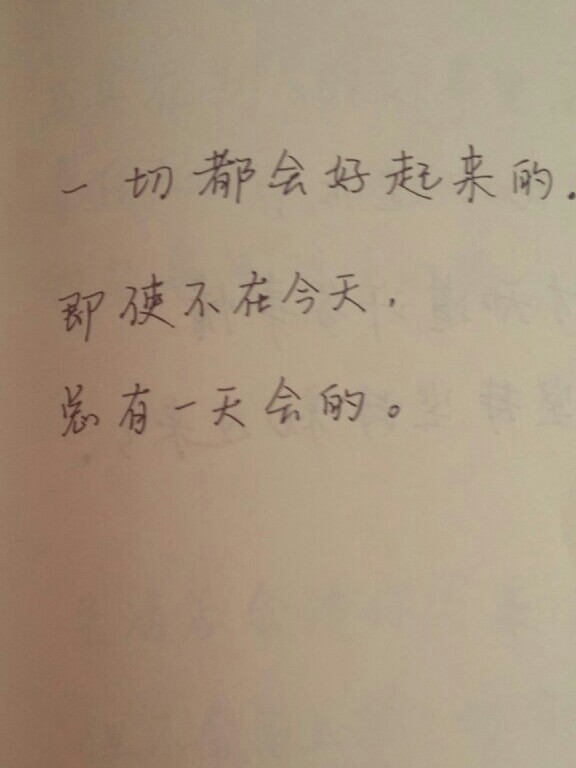 一切都会好起来的.
即使不在今天,
总有一天会的。